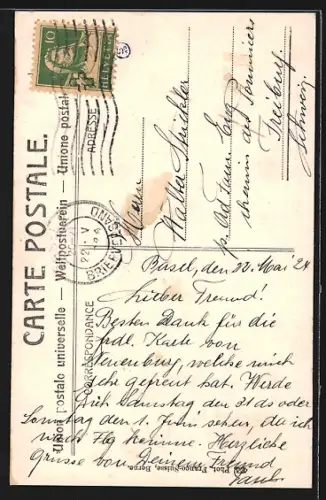 CARTE POSTALE.
Union postale universelle — Weltpostverein — Unione postale
CORRESPONDANCE
ADRESSE
HELVETIA
10
BRIEFVERSAND
22. V.
Herrn
Walter
p. Ad.
chemin des Pommiers
Freiburg
Schweiz
Basel, den 22. Mai 24
Lieber Freund!
Besten Dank für die
frdl. Karte von
Neuenburg, welche mich
sehr gefreut hat. Werde
Dich Samstag den 31. ds oder
Sonntag den 1. Juni sehen, da ich
nach Fbg komme. Herzliche
Grüsse von Deinem Freund
Paul
Phot. Franco-Suisse, Berne.